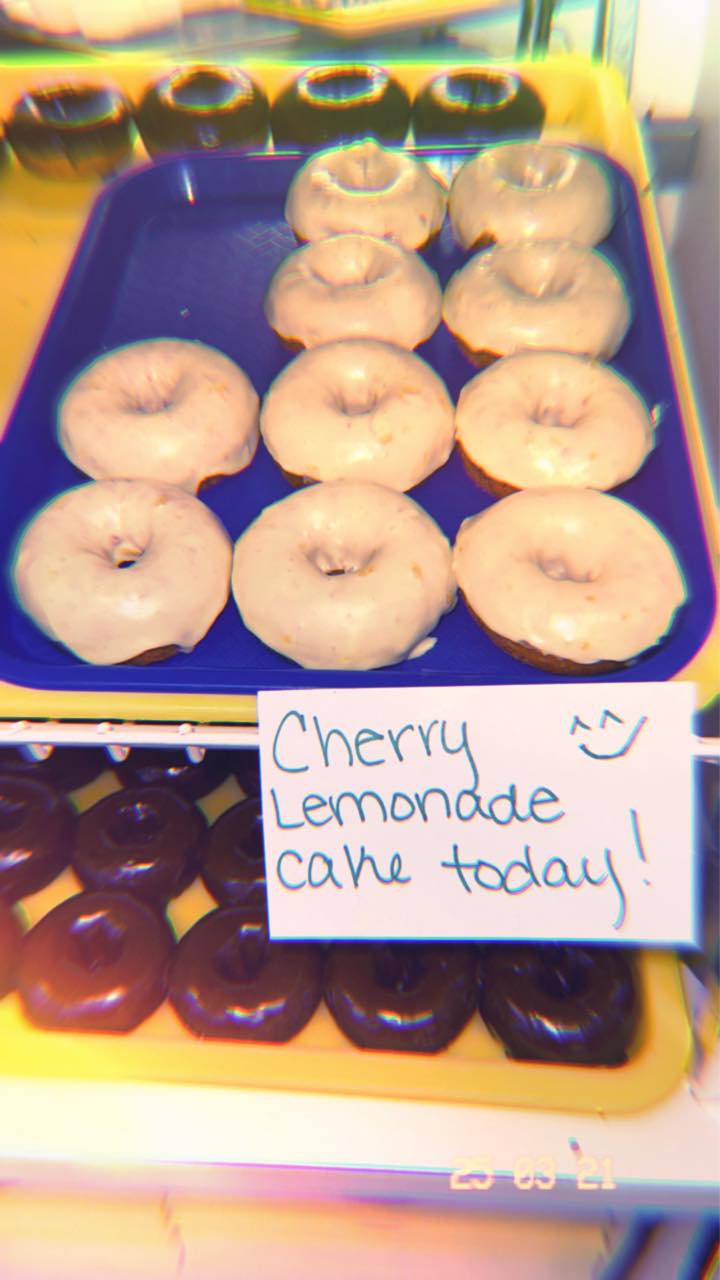 Cherry
Lemonade
cake today!
25 03 21